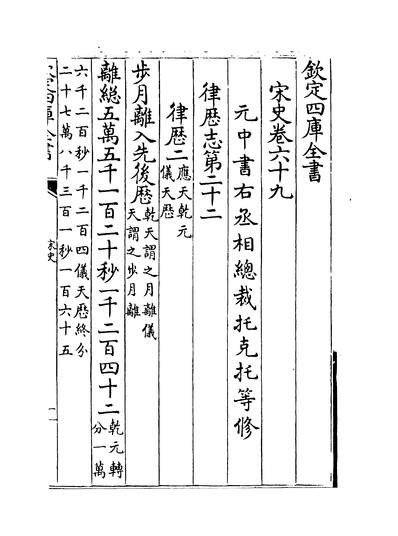 欽定四庫全書
宋史卷六十九
元中書右丞相總裁托克托等修
律歴志第二十二
律歴二應天乾元
儀天歴
步月離入先後歴乾天謂之月離儀
天謂之步月離
離總五萬五千一百二十秒一千二百四十二乾元轉
分一萬
六千二百秒一千二百四儀天歴終分
二十七萬八千三百一秒一百六十五
宋史